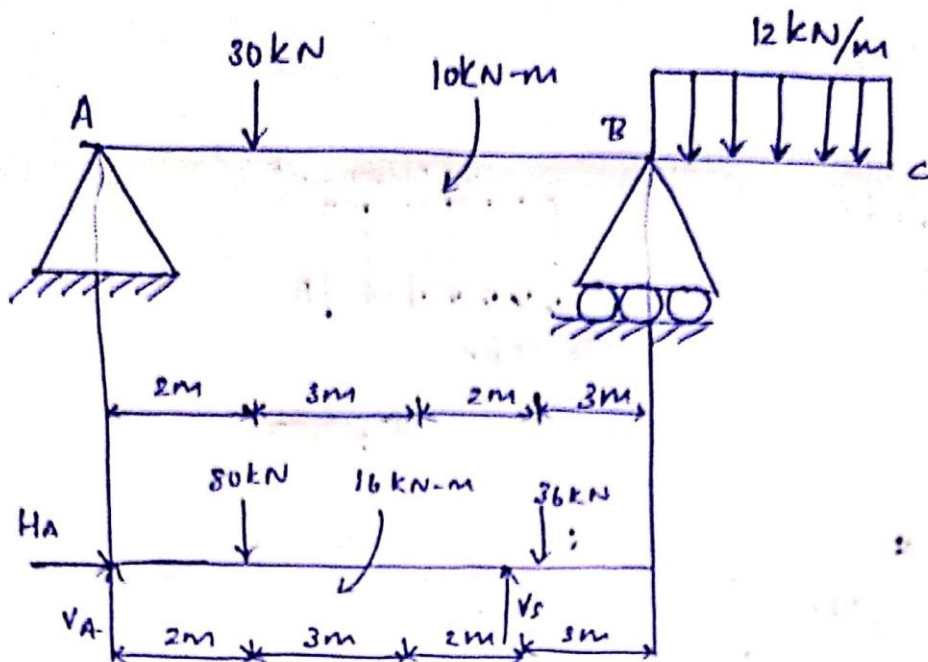 30kN
10kN-m
12kN/m
A
B
C
2m 3m 2m 3m
80kN
16kN-m
36kN
HA
VA
2m 3m 2m 3m